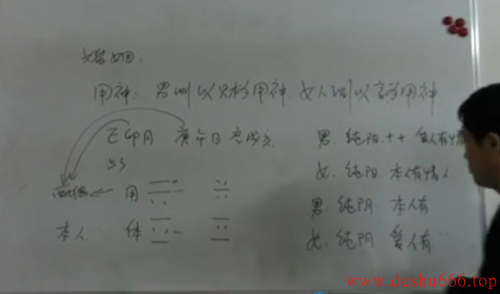 婚姻：
用神：男测以财为用神，女人测以官为用神
己卯月 庚午日
男：纯阳 ++ 爱人有情
女：纯阳 本人有情人
用
男：纯阴 本人有
本人 体
女：纯阴 爱人有
www.dashu666.top